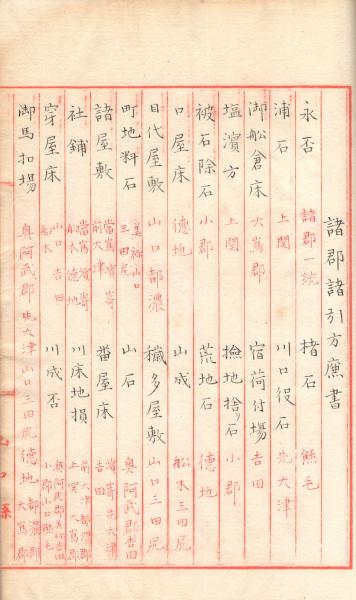 諸郡諸引方廉書
永否 諸郡一統 楮石 熊毛
浦石 上関 川口役石 先大津
御船倉床 大嶌郡 宿荷付場 吉田
塩濱方 上関 撿地捨リ石 小郡
被石除石 小郡 荒地石 徳地
口屋床 徳地 山成 舩木 三田尻
目代屋敷 山口 都濃 穢多屋敷 山口 三田尻
町地料石 美祢 山口 三田尻 山石 奥阿武郡 吉田
諸屋敷 當嶌 濱嵜 前大津 番屋床 濱嵜 先大津 吉田
社鋪 當嶌 濱嵜 舩木 徳地 川床地損 前大津 都濃郡 上関 大嶌郡
穿屋床 山口 吉田 舩木 川成否 奥阿武郡 美祢 吉田 小郡 山口 熊毛
御馬扣場 奥阿武郡 先大津 山口 三田尻 徳地 都濃郡 大嶌郡